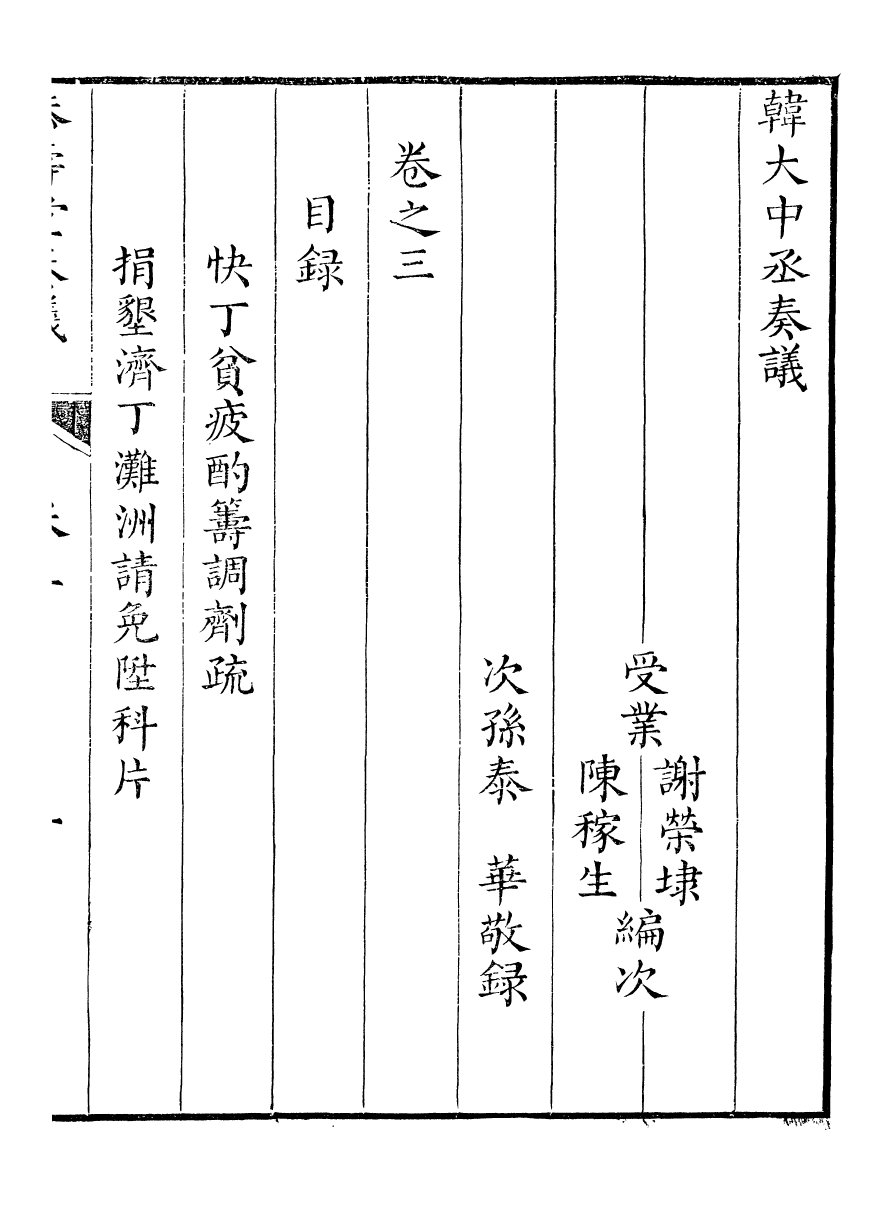 韓大中丞奏議
受業
謝榮埭
陳稼生
編次
次孫泰　華敬録
卷之三
目録
快丁貧疲酌籌調劑疏
捐墾濟丁灘洲請免陞科片